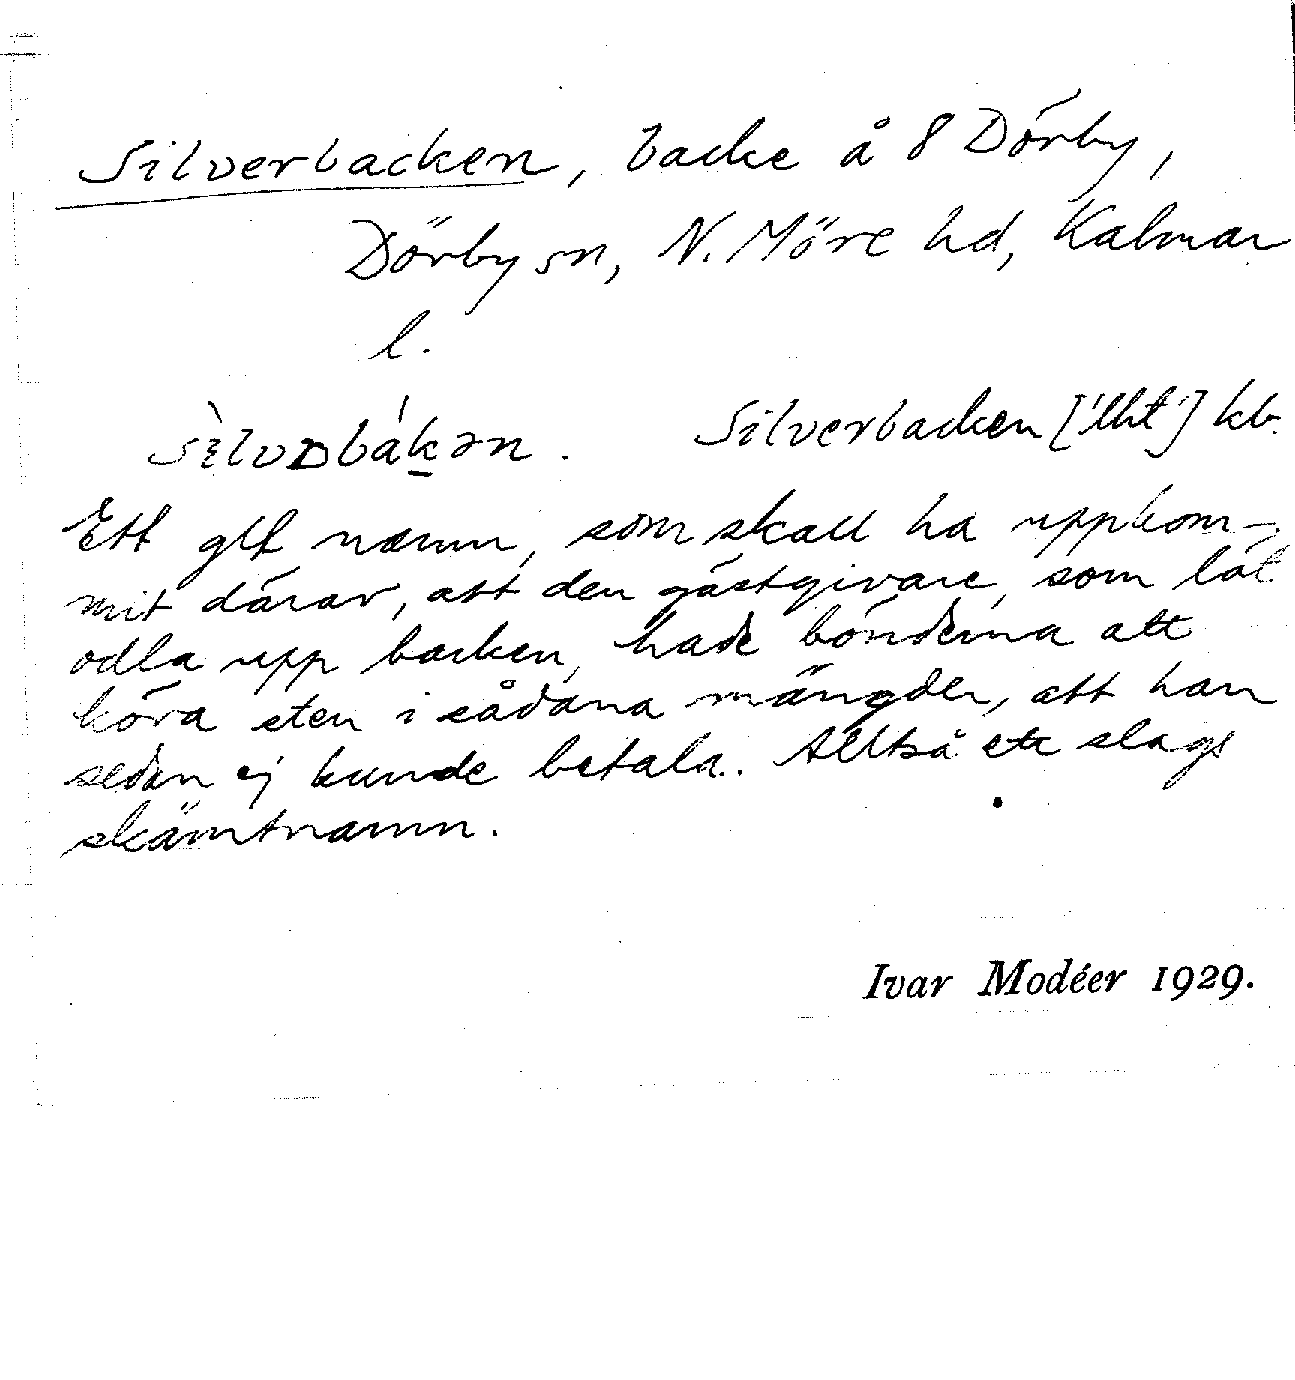 Silverbacken, backe å 8 Dörby,
Dörby sn, N. Möre hd, Kalmar
l.
Silverbacken kb.
Ett glt namn, som skall ha uppkom-
mit därav, att den gästgivare, som lät
odla upp backen, hade bönderna att
köra sten i sådana mängder, att han
sedan ej kunde betala. Alltså ett slags
skämtnamn.
Ivar Modéer 1929.